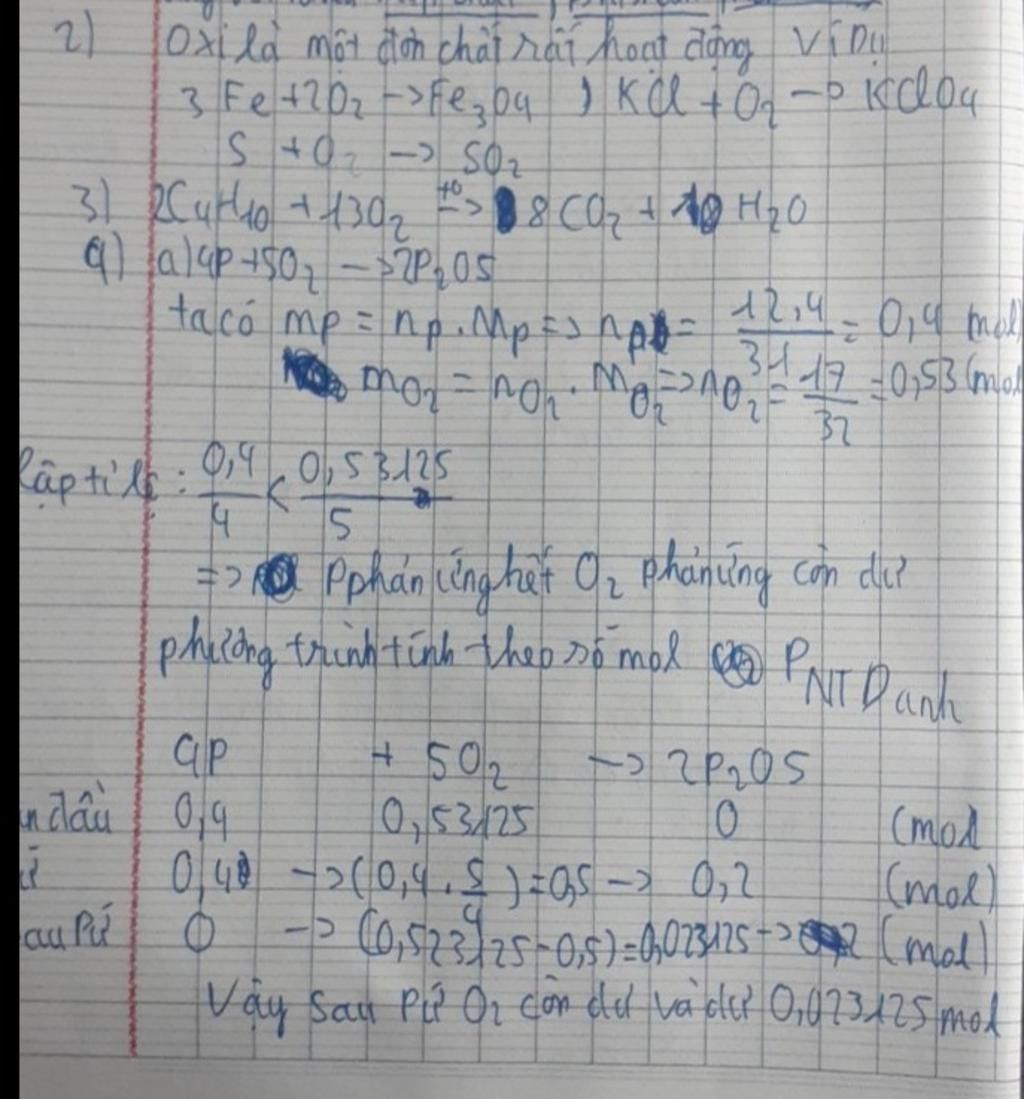 2) Oxi là một đơn chất rất hoạt động Ví Dụ
3 Fe + 2O2 -> Fe3O4 ) KCl + O2 -> KClO4
S + O2 -> SO2
3) 2C4H10 + 13O2 t0-> 8CO2 + 10 H2O
4) a) 4P + 5O2 -> 2P2O5
ta có mp = np . Mp => np = 12,4/31 = 0,4 mol
mO2 = nO2 . MO2 => nO2 = 17/32 = 0,53 (mol
lập tỉ lệ : 0,4/4 < 0,53125/5
=> P phản ứng hết O2 phản ứng còn dư
phương trình tính theo số mol P NTDanh
4P + 5O2 -> 2P2O5
n đầu 0,4 0,53125 0 (mol
ứ 0,4 -> (0,4 . 5/4) = 0,5 -> 0,2 (mol)
au Pứ 0 -> (0,523125 - 0,5) = 0,023125 -> 0,2 (mol)
Vậy sau Pứ O2 còn dư và dư 0,023125 mol